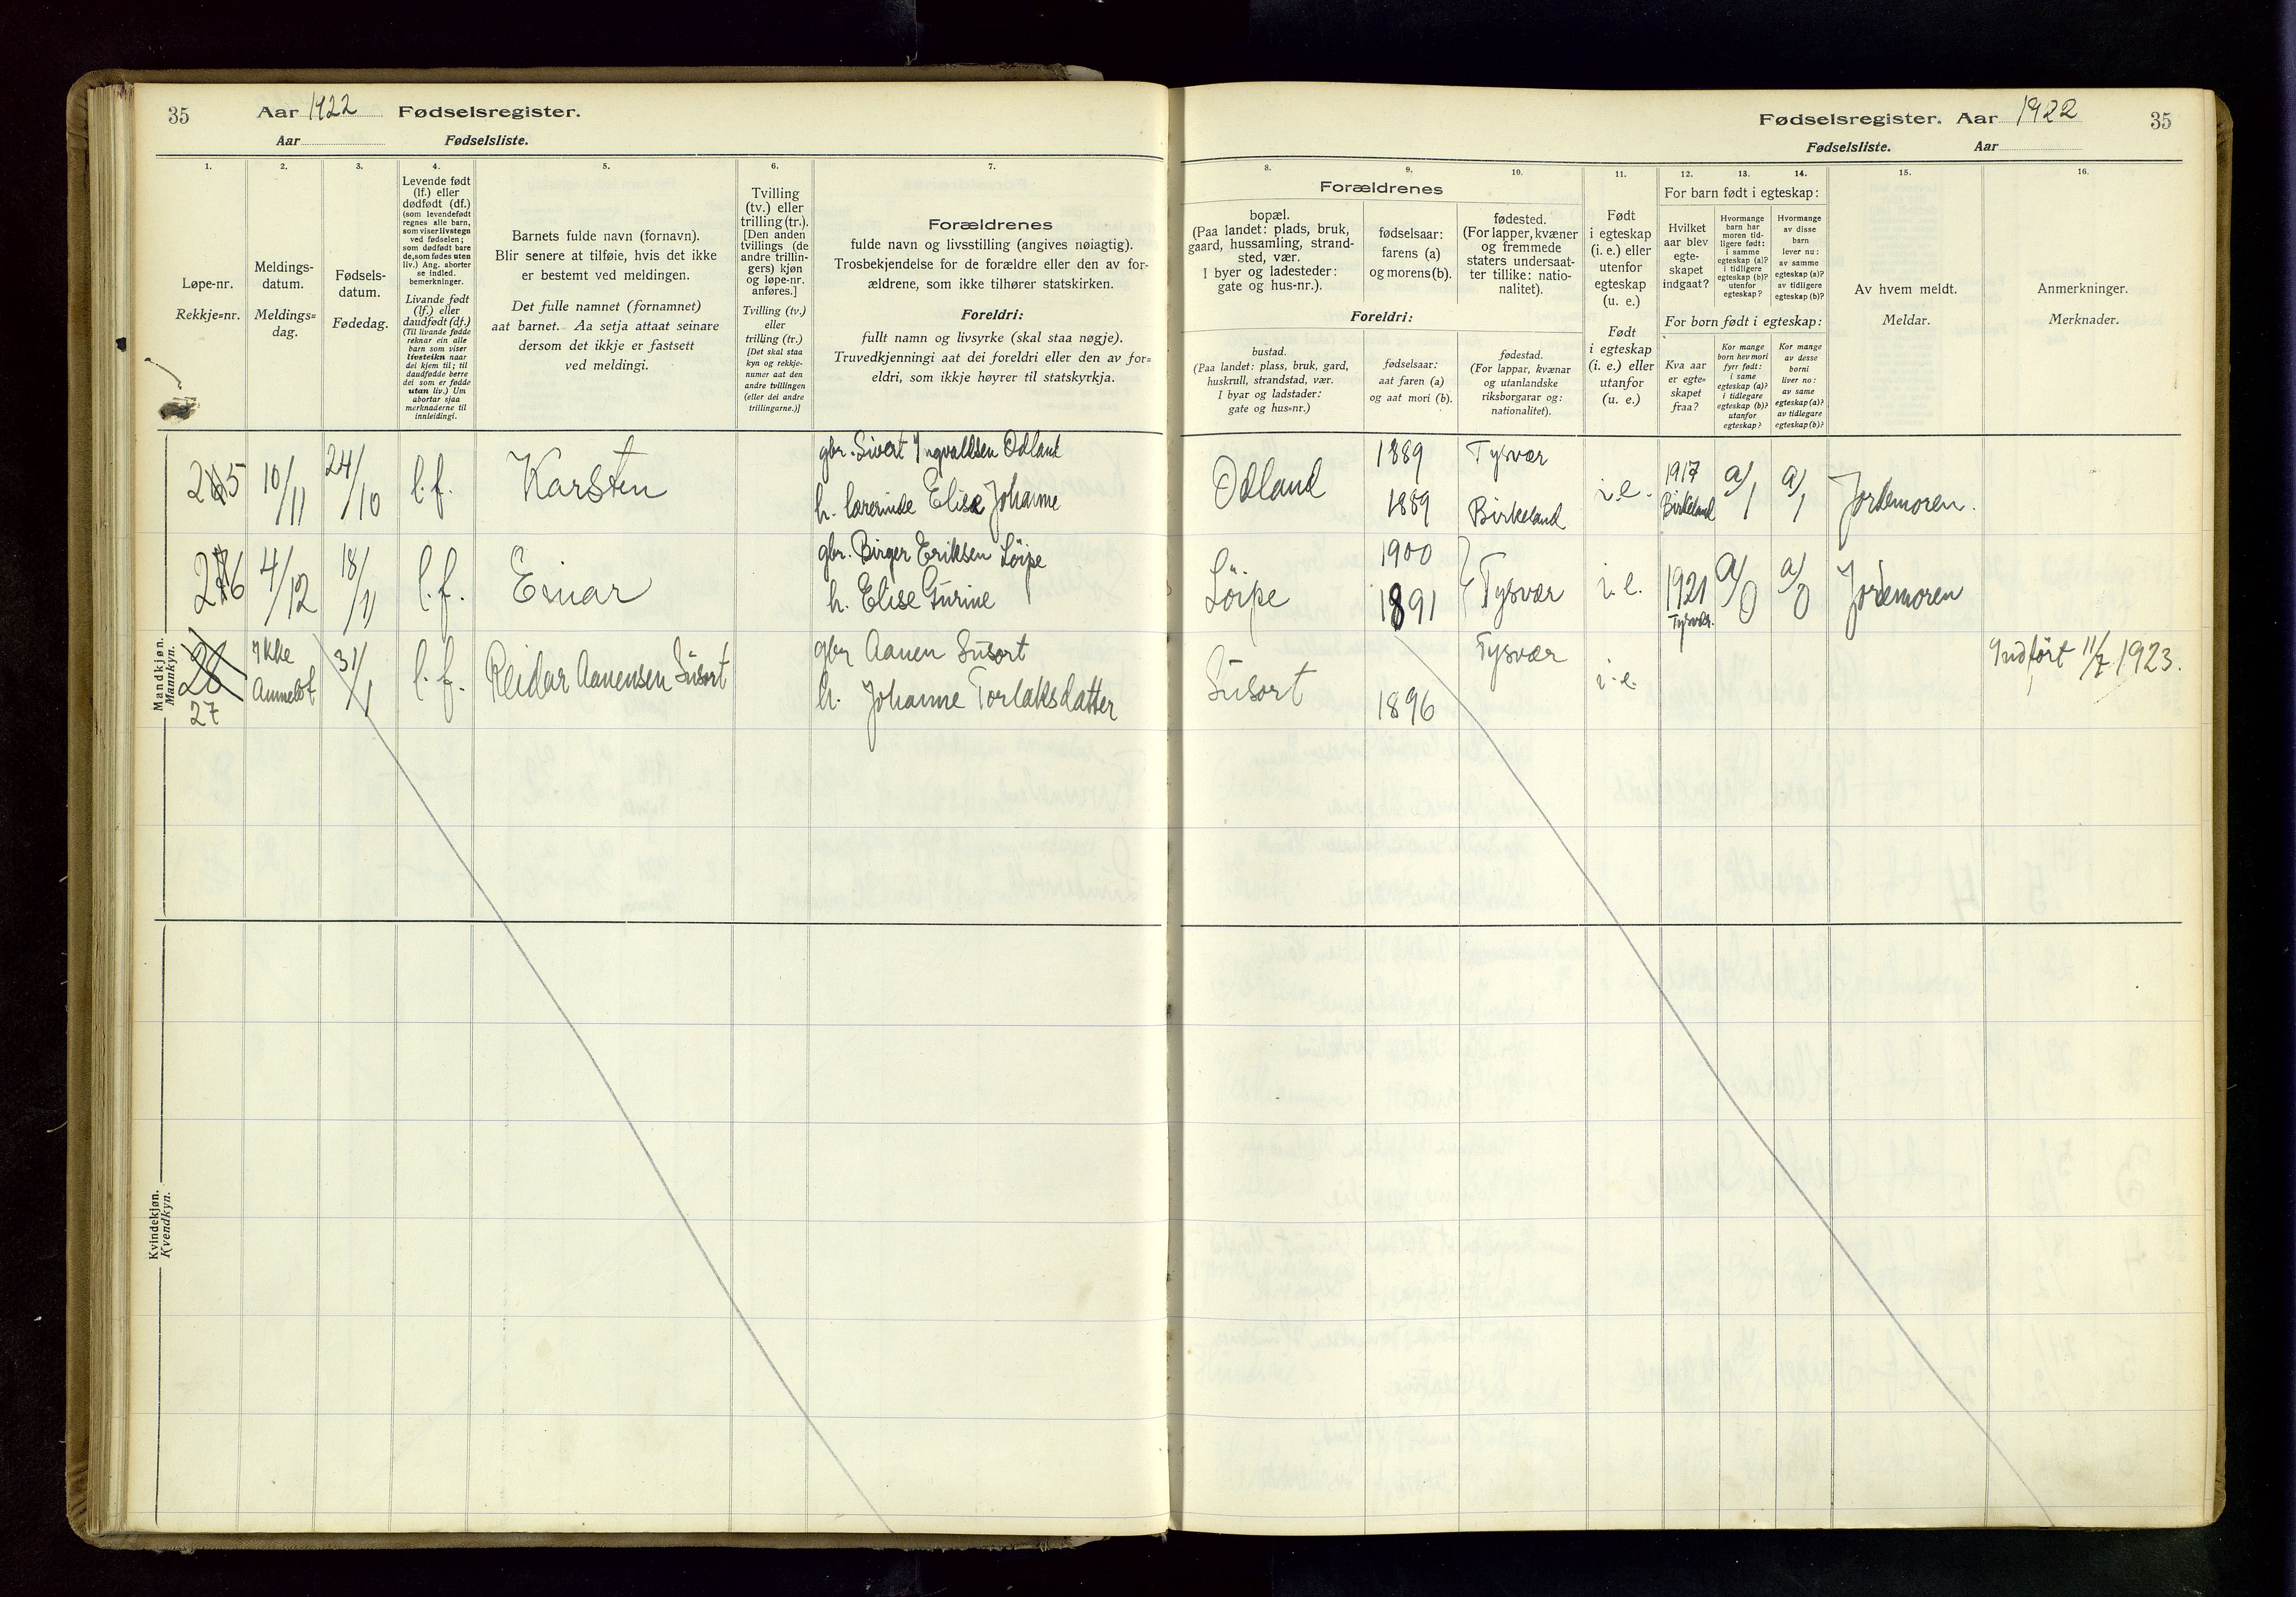 35
Aar 1922 Fødselsregister.
Aar Fødselsliste.
1.
2.
3.
4.
5.
6.
7.
Løpe-nr.
Rekkje=nr.
Meldings-
datum.
Meldings=
dag.
Fødsels-
datum.
Fødedag.
Levende født
(lf.) eller
dødfødt (df.)
(som levendefødt
regnes alle barn,
som viser livstegn
ved fødselen;
som dødfødt bare
de, som fødes uten
liv.) Ang. aborter
se indled.
bemerkninger.
Livande født
(lf.) eller
daudfødt (df.)
(Til livande fødde
reknar ein alle
barn som viser
livsteikn naar
dei kjem til; til
daudfødde berre
dei som er fødde
utan liv.) Um
abortar sjaa
merknaderne til
innleidingi.
Barnets fulde navn (fornavn).
Blir senere at tilføie, hvis det ikke
er bestemt ved meldingen.
Det fulle namnet (fornamnet)
aat barnet. Aa setja attaat seinare
dersom det ikkje er fastsett
ved meldingi.
Tvilling
(tv.) eller
trilling (tr.).
[Den anden
tvillings (de
andre trillin-
gers) kjøn
og løpe-nr.
anføres.]
Tvilling (tv.)
eller
trilling (tr.)
[Det skal staa
kyn og rekkje-
numer aat den
andre tvillingen
(eller dei andre
trillingarne.)]
Forældrenes
fulde navn og livsstilling (angives nøiagtig).
Trosbekjendelse for de forældre eller den av for-
ældrene, som ikke tilhører statskirken.
Foreldri:
fullt namn og livsyrke (skal staa nøgje).
Truvedkjenningi aat dei foreldri eller den av for=
eldri, som ikkje høyrer til statskyrkja.
Mandkjøn.
Mannkyn.
265 10/11 24/10 l.f. Karsten
gbr. Sivert Ingvaldsen Odland
h. lærerinde Elise Johanne
276 4/12 18/11 l.f. Einar
gbr. Birger Eriksen Löipe
h. Elise Gurine
28 27 Ikke Anmeldt 31/1 l.f. Reidar Aanensen Susort
gbr Aanen Susort
h. Johanne Torlaksdatter
Kvindekjøn.
Kvendkyn.
Fødselsregister. Aar 1922
35
Fødselsliste. Aar
8.
9.
10.
11.
12.
13.
14.
15.
16.
Forældrenes
bopæl.
(Paa landet: plads, bruk,
gaard, hussamling, strand-
sted, vær.
I byer og ladesteder:
gate og hus-nr.).
fødselsaar:
farens (a)
og morens (b).
fødested.
(For lapper, kvæner
og fremmede
staters undersaat-
ter tillike: natio-
nalitet).
Foreldri:
bustad.
(Paa landet: plass, bruk, gard,
huskrull, strandstad, vær.
I byar og ladstader:
gate og hus=nr.)
fødselsaar:
aat faren (a)
og aat mori (b).
fødestad.
(For lappar, kvænar
og utanlandske
riksborgarar og:
nationalitet).
Født
i egteskap
(i. e.) eller
utenfor
egteskap
(u. e.)
Født
i egteskap
(i. e.) eller
utanfor
(u. e.)
For barn født i egteskap:
Hvilket
aar blev
egte-
skapet
indgaat?
Hvormange
barn har
moren tid-
ligere født:
i samme
egteskap (a)?
i tidligere
egteskap (b)?
utenfor
egteskap?
Hvormange
av disse
barn
lever nu:
av samme
egteskap (a)?
av tidligere
egteskap (b)?
For born født i egteskap:
Kva aar
er egte=
skapet
fraa?
Kor mange
born hev mori
fyrr født:
i same
egteskap (a)?
i tidlegare
egteskap (b)?
utanfor
egteskap?
Kor mange
av desse
borni
liver no:
av same
egteskap (a)?
av tidlegare
egteskap (b)?
Av hvem meldt.
Meldar.
Anmerkninger.
Merknader.
Odland 1889 Tysvær i.e. 1917 a/1 a/1 Jordemoren.
1889 Birkeland Birkeland
Löipe 1900 Tysvær i.e. 1921 a/0 a/0 Jordemoren
1891 Tysvær.
Susort Tysvær i.e. Indført 11/7 1923.
1896